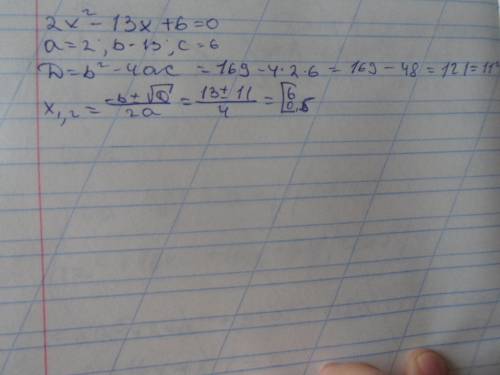 2x² - 13x + 6 = 0
a = 2; b - 13; c = 6
D = b² - 4ac = 169 - 4·2·6 = 169 - 48 = 121 = 11²
x₁,₂ = (-b ± √D)/2a = (13 ± 11)/4 = [6 0,5